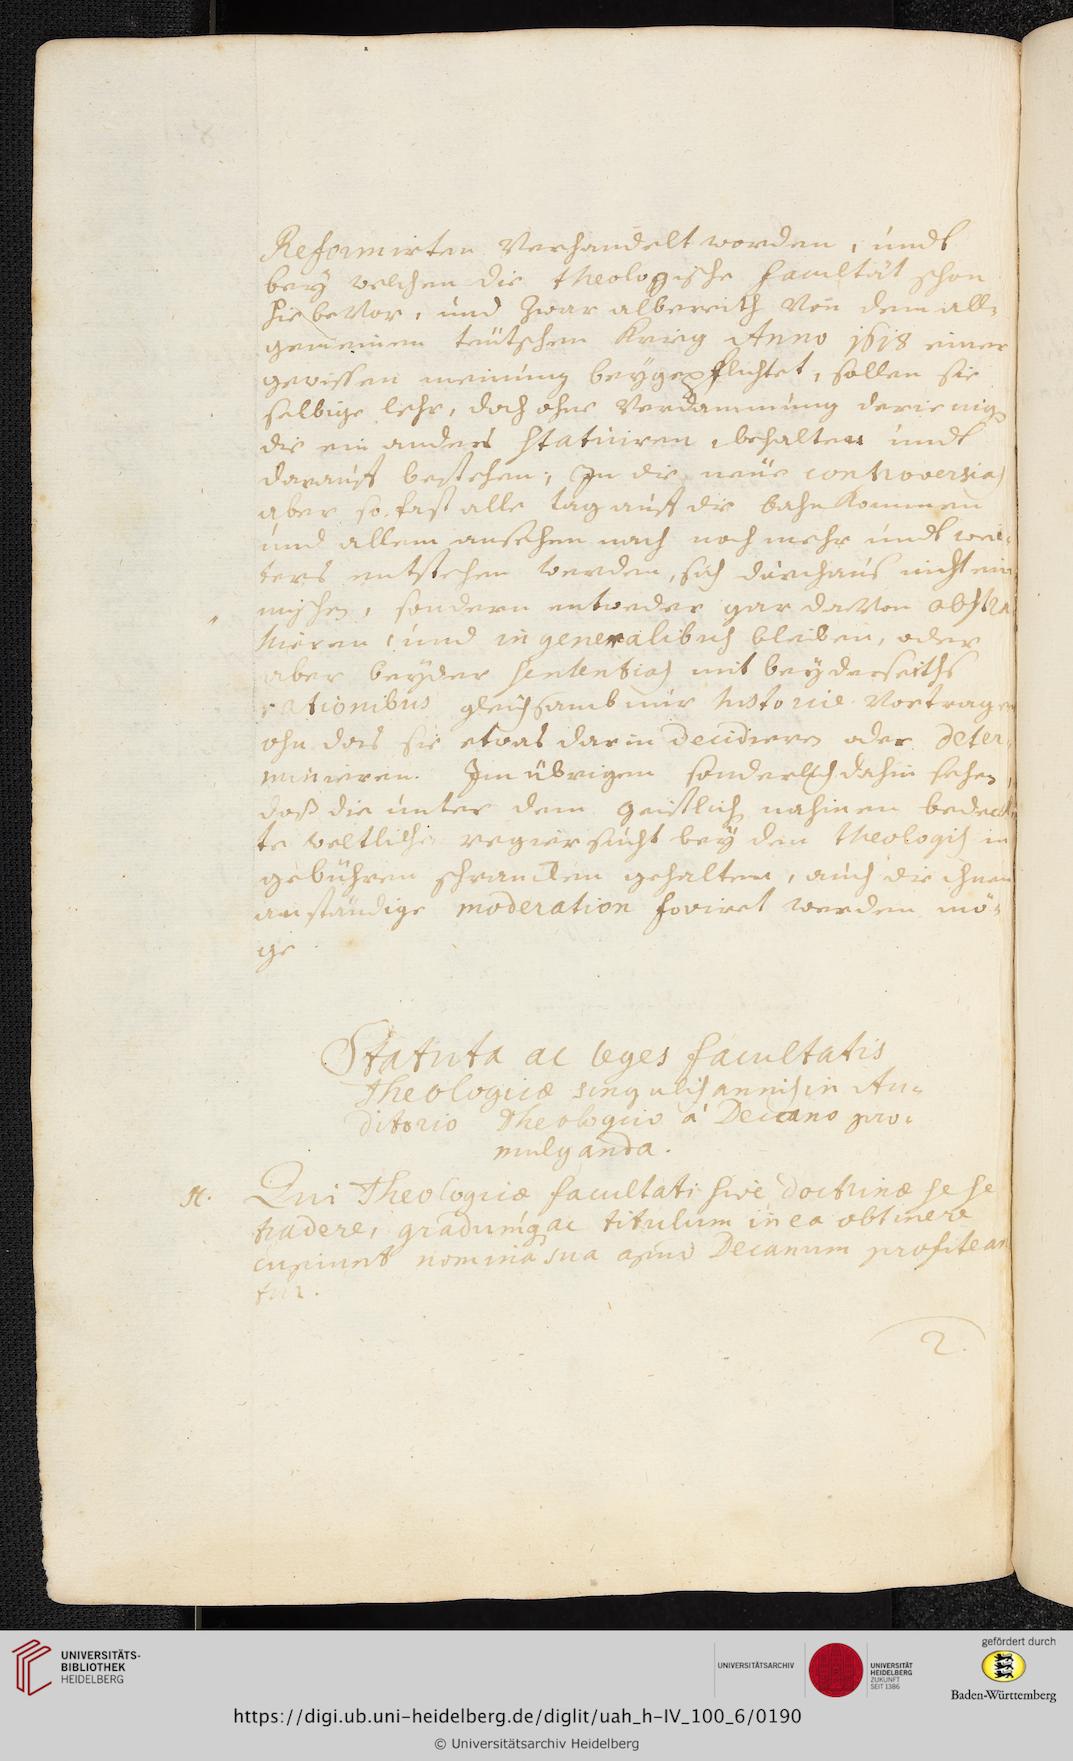 Reformirten Verhandelt worden, undt
bey welchen die theologische facultät schon
hiebevor, und zwar albereith von dem all-
gemeinen teütschen Krieg Anno 1618 einer
gewissen meinung beygepflichtet, sollen sie
selbige lehr, doch ohne Verdammung derienigen
die ein anders statuiren, behalten undt
darauff bestehen; In die neüe controversias
aber so fast alle tag auff die bahn kommen
und allem ansehen nach noch mehr undt wei-
ters entstehen werden, sich durchaus nicht ein
mischen, sondern entweder gar davon abstra
hieren, und in generalibus bleiben, oder
aber beyder sententias mit beyderseiths
rationibus gleichsamb nur historice vortragen
ohn das sie etwas darin decidieren oder deter-
minieren. Im übrigen sonderlich dahin sehen,
daß die unter dem geistlich nahmen bedeck
te weltliche regiersucht bey den theologis in
gebühren schrancken gehalten, auch die ihnen
anständige moderation foviret werden mö-
ge.
Statuta ac leges facultatis
Theologicæ singulis annis in Au-
ditorio Theologico à Decano pro-
mulganda.
Qui Theologicæ facultati sive doctrinæ se se
tradere, gradumq ac titulum in ea obtinere
cupiunt nomina sua apud Decanum profitean
tur.
2.
UNIVERSITÄTS-
BIBLIOTHEK
HEIDELBERG
UNIVERSITÄTSARCHIV
UNIVERSITÄT
HEIDELBERG
ZUKUNFT
SEIT 1386
gefördert durch
Baden-Württemberg
https://digi.ub.uni-heidelberg.de/diglit/uah_h-IV_100_6/0190
© Universitätsarchiv Heidelberg